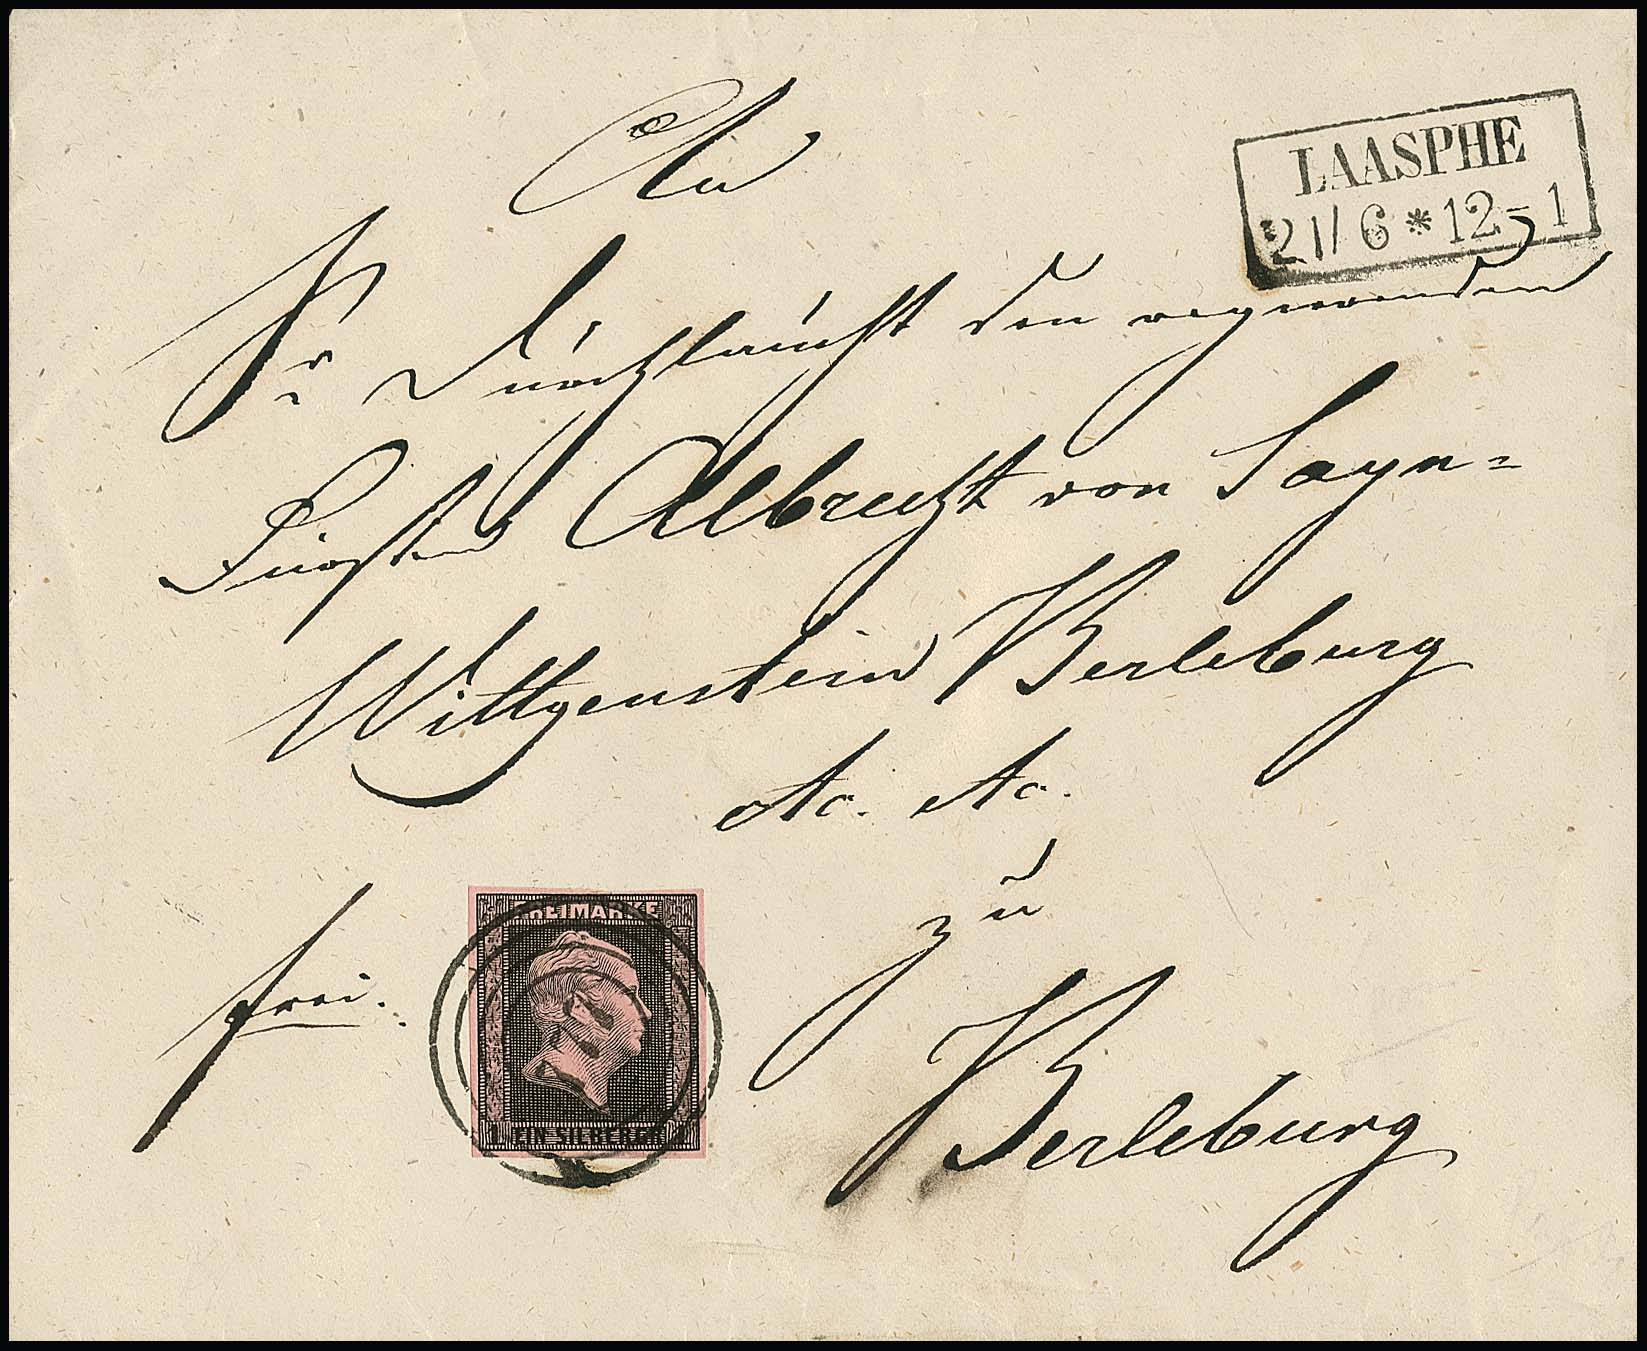 LAASPHE
21/6 * 12-1
An
Sr Durchlaucht den regierenden
Fürsten Albrecht von Sayn=
Wittgenstein Berleburg
etc. etc.
zu
frei.
Berleburg
FREIMARKE
1 EIN SILBERGR. 1